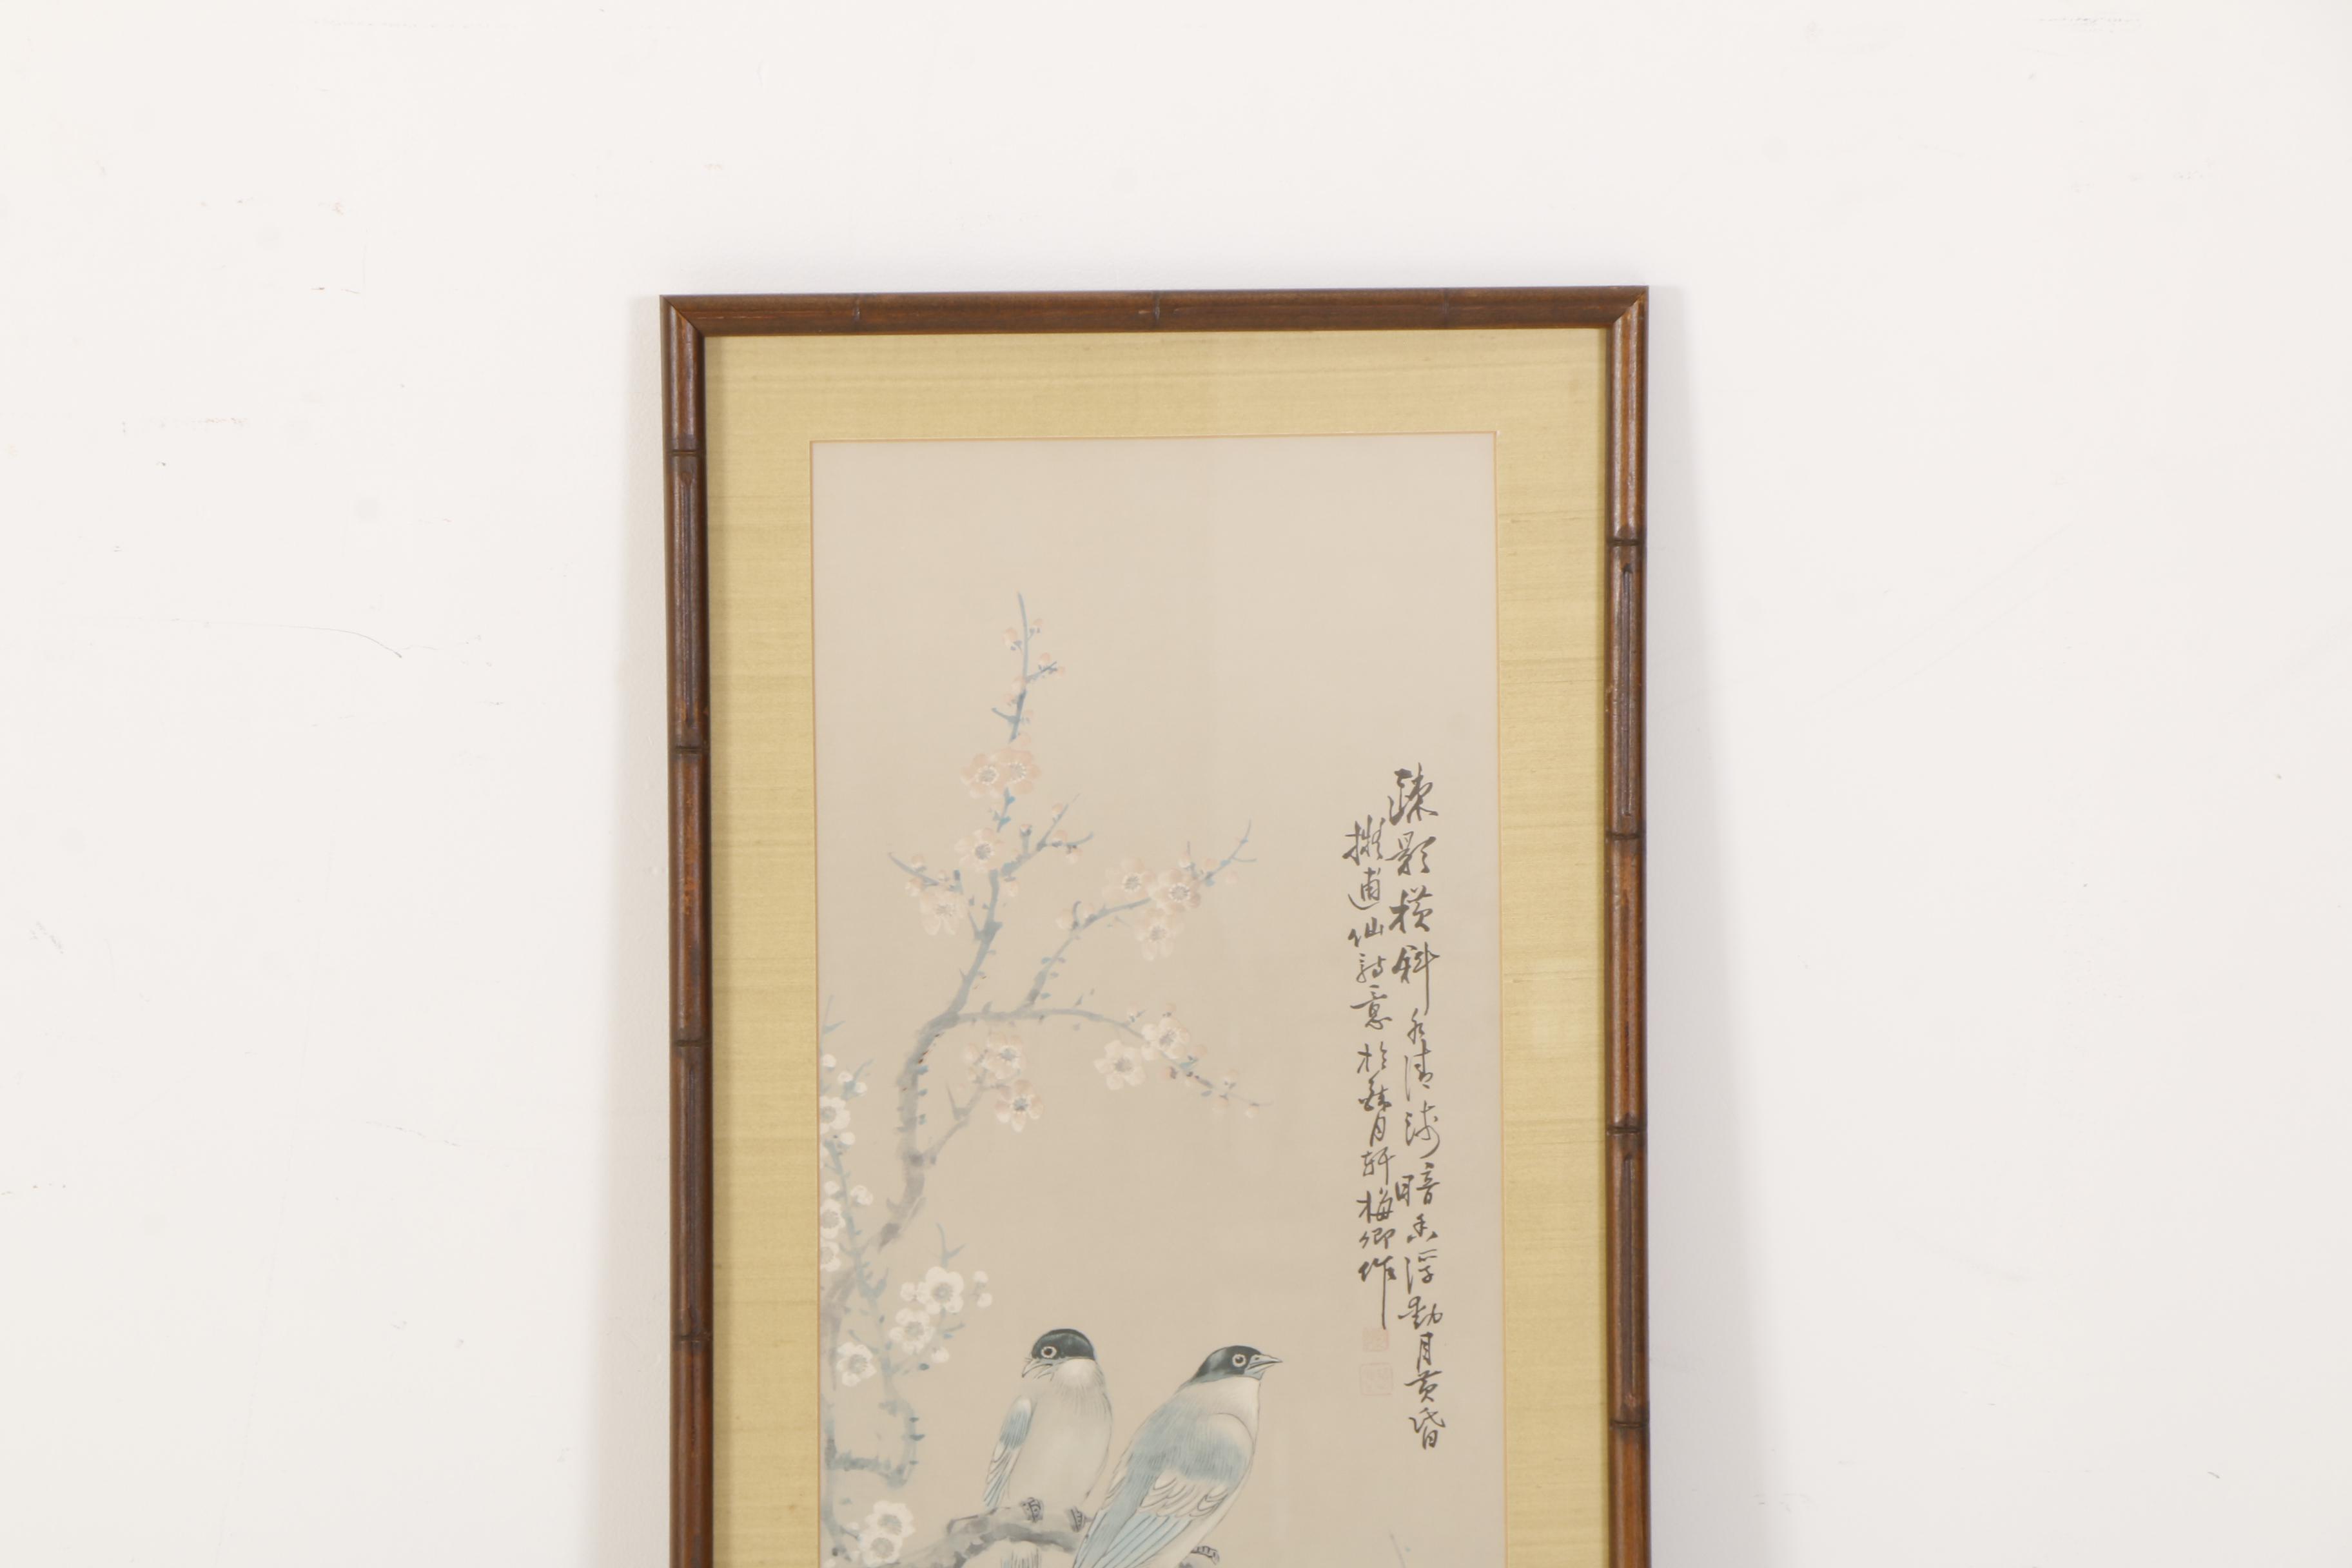 疎影橫斜水清淺暗香浮動月黃昏
擬逋仙詩意於醉月軒梅卿作